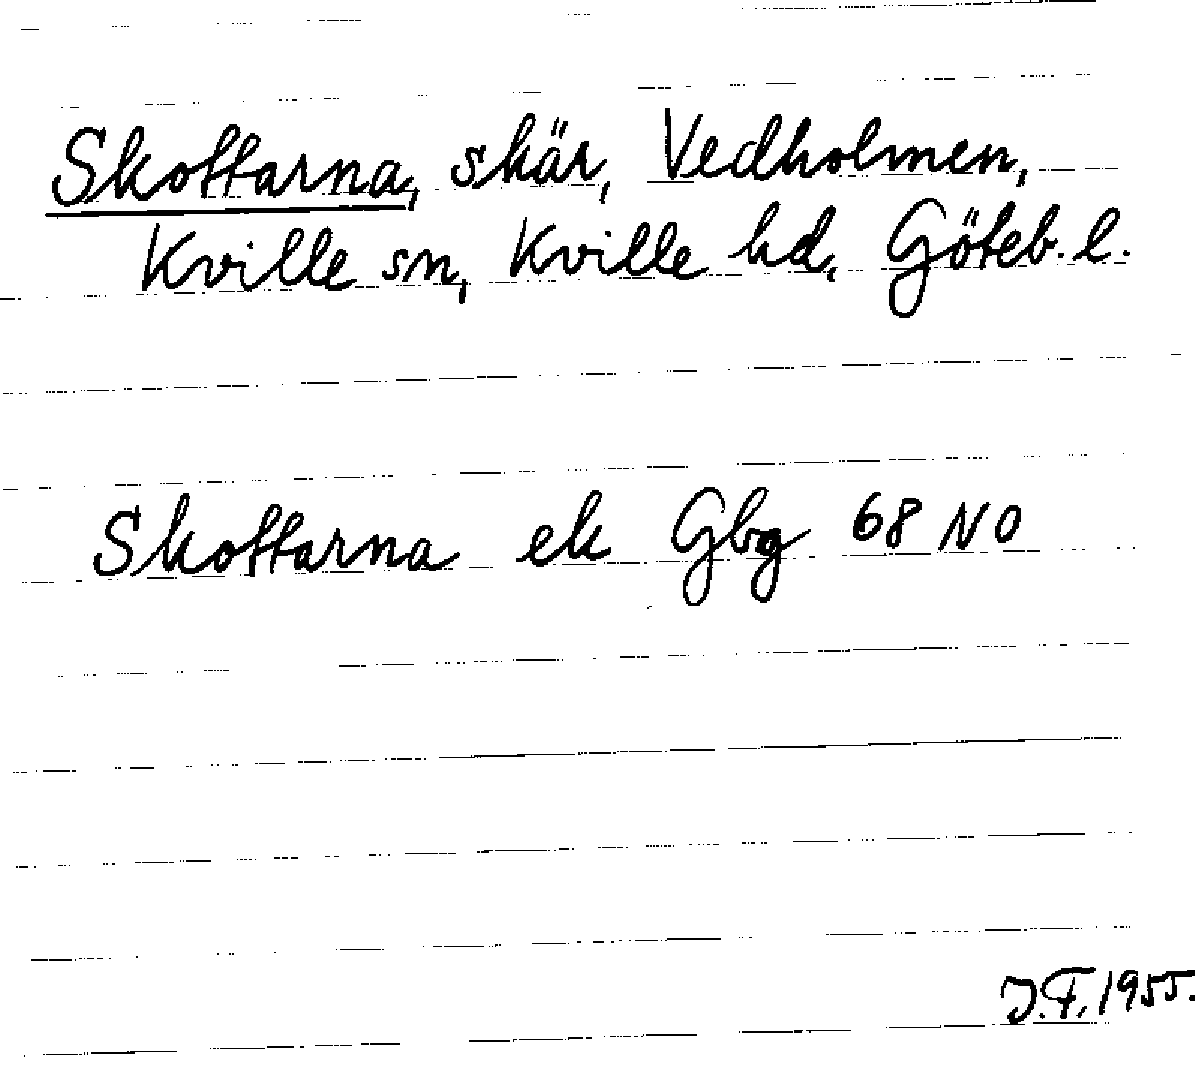 Skottarna, skär, Vedholmen,
Kville sn, Kville hd, Göteb. l.
Skottarna ek Gbg 68 NO
J.F. 1955.